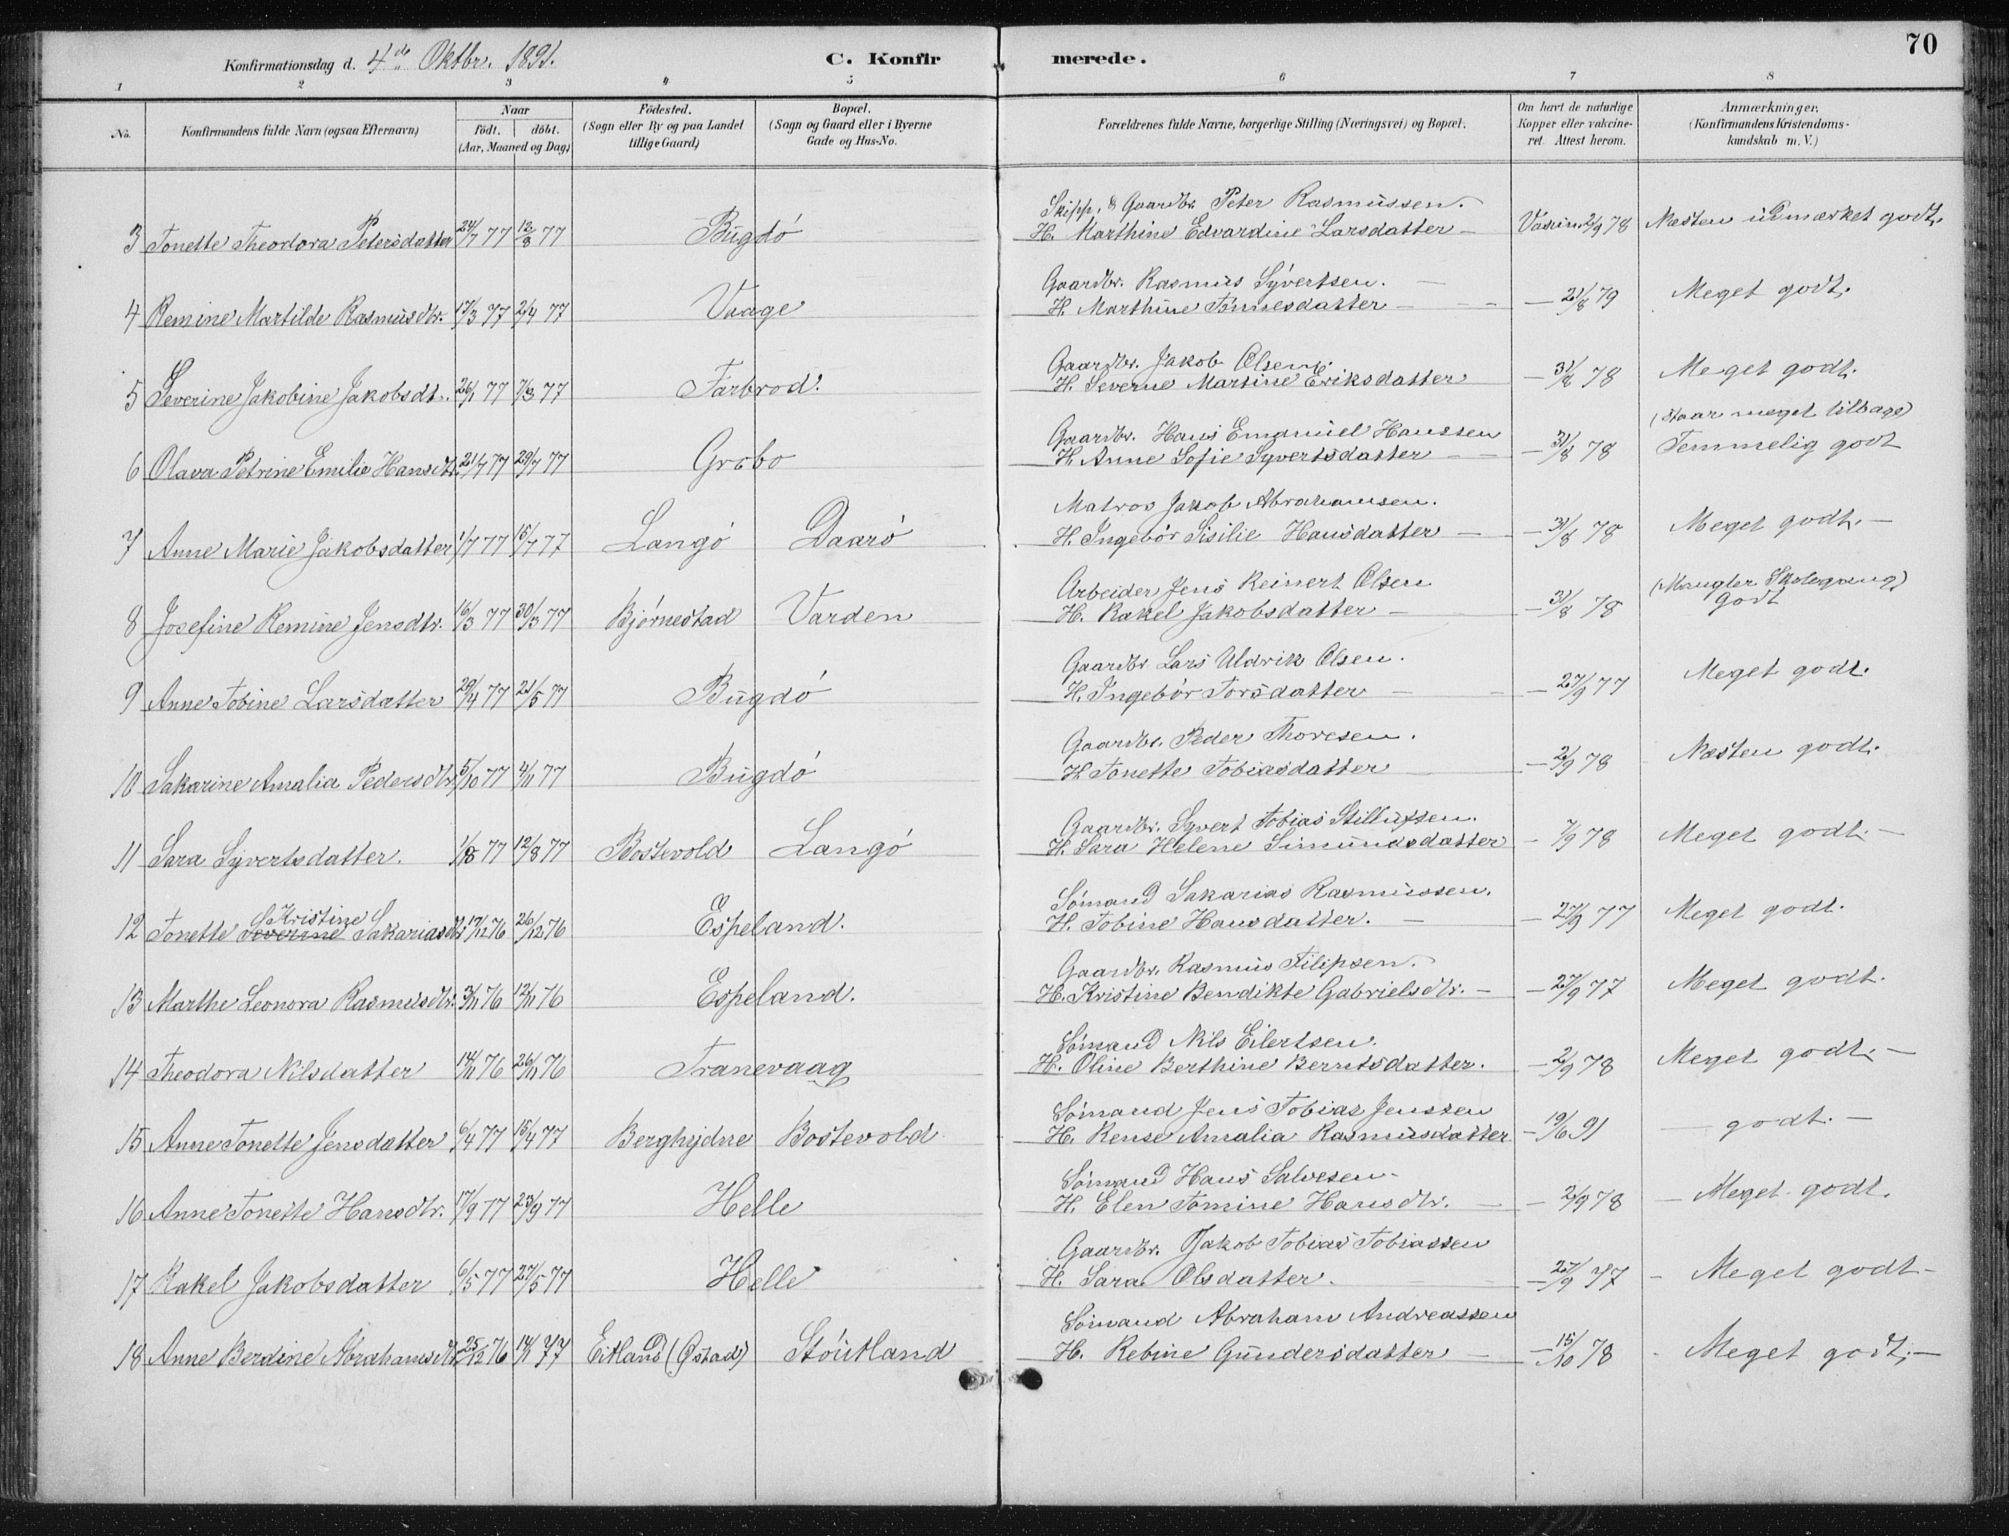 Konfirmationsdag d. 4de Oktbr. 1891.
C. Konfir
merede.
70
1 2 3 4 5 6 7 8
No.
Konfirmandens fulde Navn (ogsaa Efternavn)
Naar
födt. döbt.
(Aar, Maaned og Dag)
Födested.
(Sogn eller By og paa Landet
tillige Gaard)
Bopæl.
(Sogn og Gaard eller i Byerne
Gade og Hus-No.
Forældrenes fulde Navne, borgerlige Stilling (Næringsvei) og Bopæl.
Om havt de naturlige
Kopper eller vakcine-
ret. Attest herom.
Anmærkninger.
(Konfirmandens Kristendoms-
kundskab m. V.)
Skipp. & Gaardbr. Peter Rasmussen.
3 Tonette Theodora Petersdatter 24/7 77 12/8 77 Bugdó H. Marthine Edvardine Larsdatter Vaccin. 2/9 78 Næsten udmærket godt.
Gaardbr. Rasmus Syvertsen.
4 Remine Martilde Rasmusdtr. 17/3 77 2/4 77 Vaage H. Marthine Tønnesdatter 21/8 79 Meget godt.
Gaardbr. Jakob Olsen
5 Severine Jakobine Jakobsdt. 26/1 77 7/3 77 Farbrod. H. Severine Martine Eriksdatter 31/8 78 Meget godt.
Gaardbr. Hans Emanuel Hanssen (staar meget tilbage)
6 Olava Petrine Emilie Hansdt. 21/7 77 29/7 77 Grøbo H. Anne Sofie Syvertsdatter 31/8 78 Temmelig godt
Matros Jakob Abrahamsen.
7 Anne Marie Jakobsdatter 1/7 77 15/7 77 Langó Daaró H. Ingebór Sisilie Hansdatter 31/8 78 Meget godt.
Arbeider Jens Reinert Olsen (Mangler Skolegang)
8 Josefine Remine Jensdtr. 16/3 77 30/3 77 Bjørnestad Varden H. Rakel Jakobsdatter 31/8 78 godt
Gaardbr. Lars Uldrik Olsen.
9 Anne Tobine Larsdatter 29/4 77 21/5 77 Bugdó H. Ingebór Torsdatter 27/9 77 Meget godt.
Gaardbr. Peder Thoresen.
10 Sakarine Amalia Pedersdtr. 5/10 77 4/11 77 Bugdó H. Tonette Tobiasdatter 2/9 78 Næsten godt.
Gaardbr. Syvert Tobias Stillufsen.
11 Sara Syvertsdatter. 1/8 77 12/8 77 Bostevold Langó H. Sara Helene Simundsdatter 7/9 78 Meget godt.
Sømand Sakarias Rasmussen.
Kristine
12 Tonette Severine Sakariasdt. 17/12 76 26/12 76 Espeland. H. Tobine Hansdatter. 27/9 77 Meget godt.
Gaardbr. Rasmus Filipsen.
13 Marthe Leonora Rasmusdtr. 3/11 76 12/11 76 Espeland. H. Kristine Bendikte Gabrielsdtr. 27/9 77 Meget godt.
Sømand Nils Eilertsen.
14 Theodora Nilsdatter 14/11 76 26/11 76 Tranevaag H. Oline Berthine Berntsdatter. 2/9 78 Meget godt.
Sømand Jens Tobias Jenssen
15 Anne Tonette Jensdatter 6/4 77 15/4 77 Berghydne Bostevold H. Rense Amalia Rasmusdatter 19/6 91 godt.
Sømand Hans Salvesen
16 Anne Tonette Hansdtr. 17/9 77 23/9 77 Helle H. Elen Tomine Hansdtr. 2/9 78 Meget godt.
Gaardbr. Jakob Tobias Tobiassen
17 Rakel Jakobsdatter 6/5 77 27/5 77 Helle H. Sara Olsdatter. 27/9 77 Meget godt
Sømand Abraham Andreassen
18 Anne Berdine Abrahamsdt. 25/12 76 14/1 77 Eitland (Østad) Stóutland H. Rebine Gundersdatter 15/10 78 Meget godt.